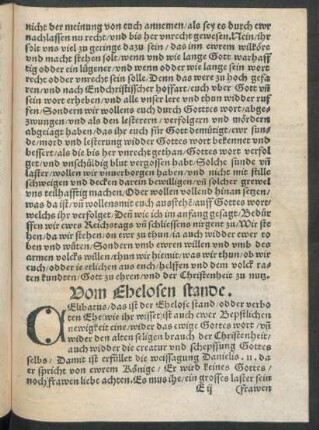 nicht der meinung von euch annemen/als sey es durch ewr
nachlassen nu recht/vnd bis her vnrecht gewesen. Nein/ihr
solt vns viel zu geringe dazu sein/das inn ewrem wilköre
vnd macht stehen solt/wenn vnd wie lange Gott warhaff
tig odder ein lügener/vnd wenn odder wie lange sein wort
recht odder vnrecht sein solle. Denn das were zu hoch gefa
ren/vnd nach Endchristischer hoffart/euch vber Gott vñ
sein wort erheben/vnd alle vnser lere vnd thun widder ruf
fen/Sondern wir wollens euch durch Gottes wort/abges
zwungen/vnd als den lesterern/verfolgern vnd mördern
abgeiagt haben/das ihr euch für Gott demütigt/ewr suns
de/mord vnd lesterung widder Gottes wort bekennet vnd
bessert/als die bis her vnrechte gethan/Gottes wort verfol
get/vnd vnschüldig blut vergossen habt/Solche sunde vñ
laster/wollen wir vnuerborgen haben/vnd nicht mit stille
schweigen vnd decken darein bewilligen/vñ solcher grewel
vns teilhafftig machen/Oder wollen vollend hinan setzen/
was da ist/vñ wollens mit euch ausstehẽ/auff Gottes wort/
welchs ihr verfolget. Deñ wie ich im anfang gesagt/Bedürs
ffen wir ewrs Reichstags vñ schliessens nirgent zu/Wir ste
hen/da wir stehen/on ewr zu thun/ia auch widder ewer to
ben vnd wüten/Sondern vmb ewren willen vnd vmb des
armen volcks willen/thun wir hiemit/was wir thun/ob wir
euch/odder ie etlichen aus euch/helffen vnd dem volck ras
ten kundten/Gott zu ehren/vnd der Christenheit zu nutz.
Vom Ehelosen stande.
CElibatus/das ist der Ehelose stand/odder verbo
ten Ehe/wie ihr wisset/ist auch ewer Bepstlichen
newigkeit eine/widder das ewige Gottes wort/vñ
widder den alten seligen brauch der Christenheit/
auch widder die creatur vnd schepffung Gottes
selbs/Damit ist erfüllet die weissagung Danielis. 11. da
er spricht von ewrem Könige/Er wird keines Gottes/
noch frawen liebe achten. Es mus ihe/ein grosses laster sein
E ij frawen